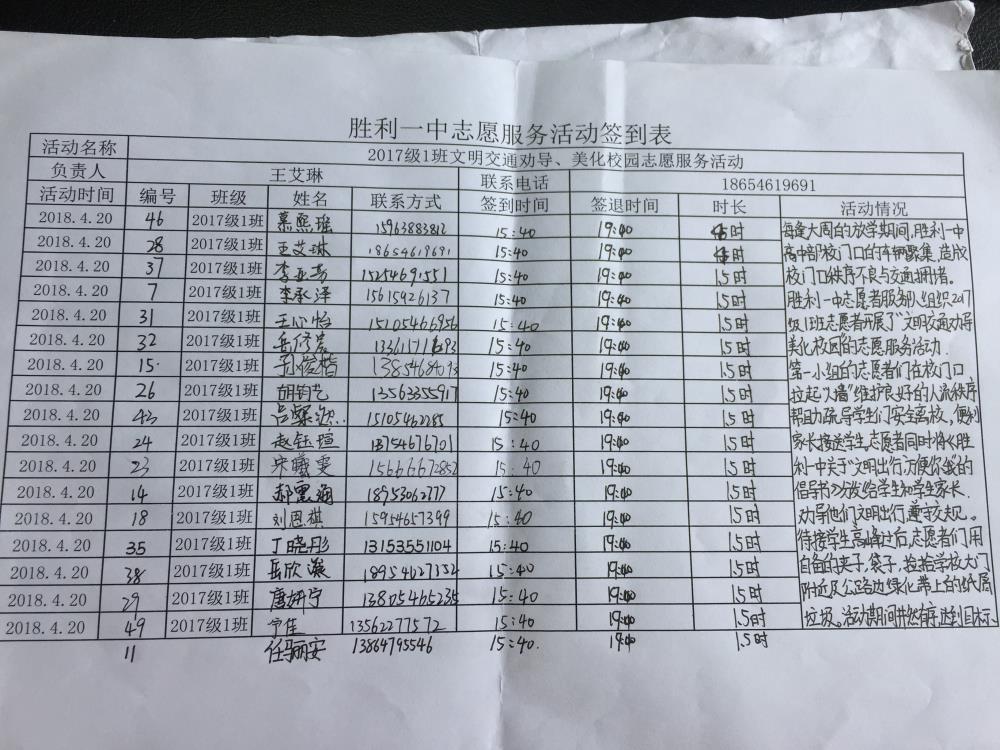 胜利一中志愿服务活动签到表
活动名称 2017级1班文明交通劝导、美化校园志愿服务活动
负责人 王艾琳 联系电话 18654619691
活动时间 编号 班级 姓名 联系方式 签到时间 签退时间 时长 活动情况
2018.4.20 46 2017级1班 慕熙瑶 15963883812 15:40 19:40 时 每逢大周的放学期间,胜利一中
2018.4.20 28 2017级1班 王艾琳 18654619691 15:40 19:40 时 高中部校门口的车辆聚集,造成
2018.4.20 37 2017级1班 15254691551 15:40 19:40 1.5时 校门口秩序不良与交通拥堵。
2018.4.20 7 2017级1班 李承泽 15615926137 15:40 19:40 1.5时 胜利一中志愿者服务队组织2017
2018.4.20 31 2017级1班 王心怡 15105466956 15:40 19:40 1.5时 级1班志愿者开展了“文明交通劝导
2018.4.20 32 2017级1班 15:40 19:40 1.5时 美化校园”的志愿服务活动.
2018.4.20 15 2017级1班 孙俊楷 15:40 19:40 1.5时 第一小组的志愿者们在校门口
2018.4.20 26 2017级1班 胡钧艺 13563355917 15:40 19:40 1.5时 拉起“人墙”维护良好的人流秩序
2018.4.20 43 2017级1班 15105462285 15:40 19:40 1.5时 帮助疏导学生们安全离校,便利
2018.4.20 24 2017级1班 赵钰瑄 15:40 19:40 1.5时 家长接送学生,志愿者同时将《胜
2018.4.20 23 2017级1班 宋曦雯 15666672852 15:40 19:40 1.5时 利一中关于“文明出行,方便你我”的
2018.4.20 14 2017级1班 18953062777 15:40 19:40 1.5时 倡导书》分发给学生和学生家长.
2018.4.20 18 2017级1班 刘恩祺 15954657399 15:40 19:40 1.5时 劝导他们文明出行,遵守交规。
2018.4.20 35 2017级1班 丁晓彤 13153551104 15:40 19:40 1.5时 待接学生高峰过后,志愿者们用
2018.4.20 38 2017级1班 岳欣潋 18954627352 15:40 19:40 1.5时 自备的夹子,袋子,捡拾学校大门
2018.4.20 29 2017级1班 唐妍宁 13805465235 15:40 19:40 1.5时 附近及公路边绿化带上的纸屑
2018.4.20 49 2017级1班 宁佳 13562277572 15:40 19:40 1.5时 垃圾。活动期间井然有序,达到目标
11 任骊安 13864795546 15:40. 19:40 1.5时